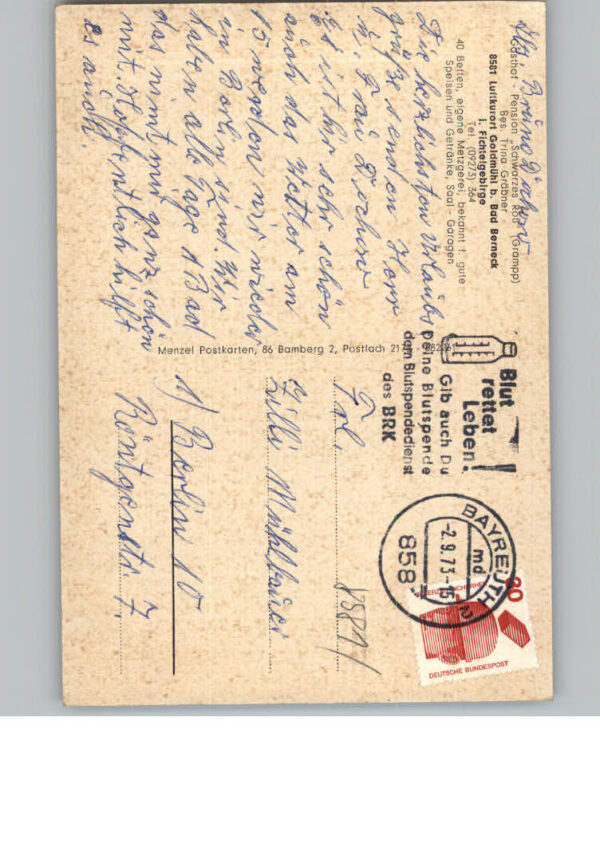 Abs. Bruno Dochow
Gasthof - Pension „Schwarzes Roß" (Grampp)
Bes. Trina Gräbner
8581 Luftkurort Goldmühl b. Bad Berneck
i. Fichtelgebirge
Tel. (09273) 364
40 Betten, eigene Metzgerei, bekannt f. gute
Speisen und Getränke, Saal - Garagen
Die herzlichsten Urlaubs
grüße senden Herr
u. Frau Dochow
Es ist hir sehr schön
auch das Wetter am
15 werden wir wieder
in Berlin sein. Wir
haben alle Tage 1 Bad
das nimt mit ganz schön
mit. Hoffentlich hilft
es auch.
Menzel Postkarten, 86 Bamberg 2, Postfach 21
Blut
rettet
Leben!
Gib auch Du
Deine Blutspende
dem Blutspendedienst
des BRK
BAYREUTH 2
md
-2.9.73-15
858
80
DEUTSCHE BUNDESPOST
8581/
Frl.
Zilli Mühlbauer
1/ Berlin 10
Röntgenstr. 7.